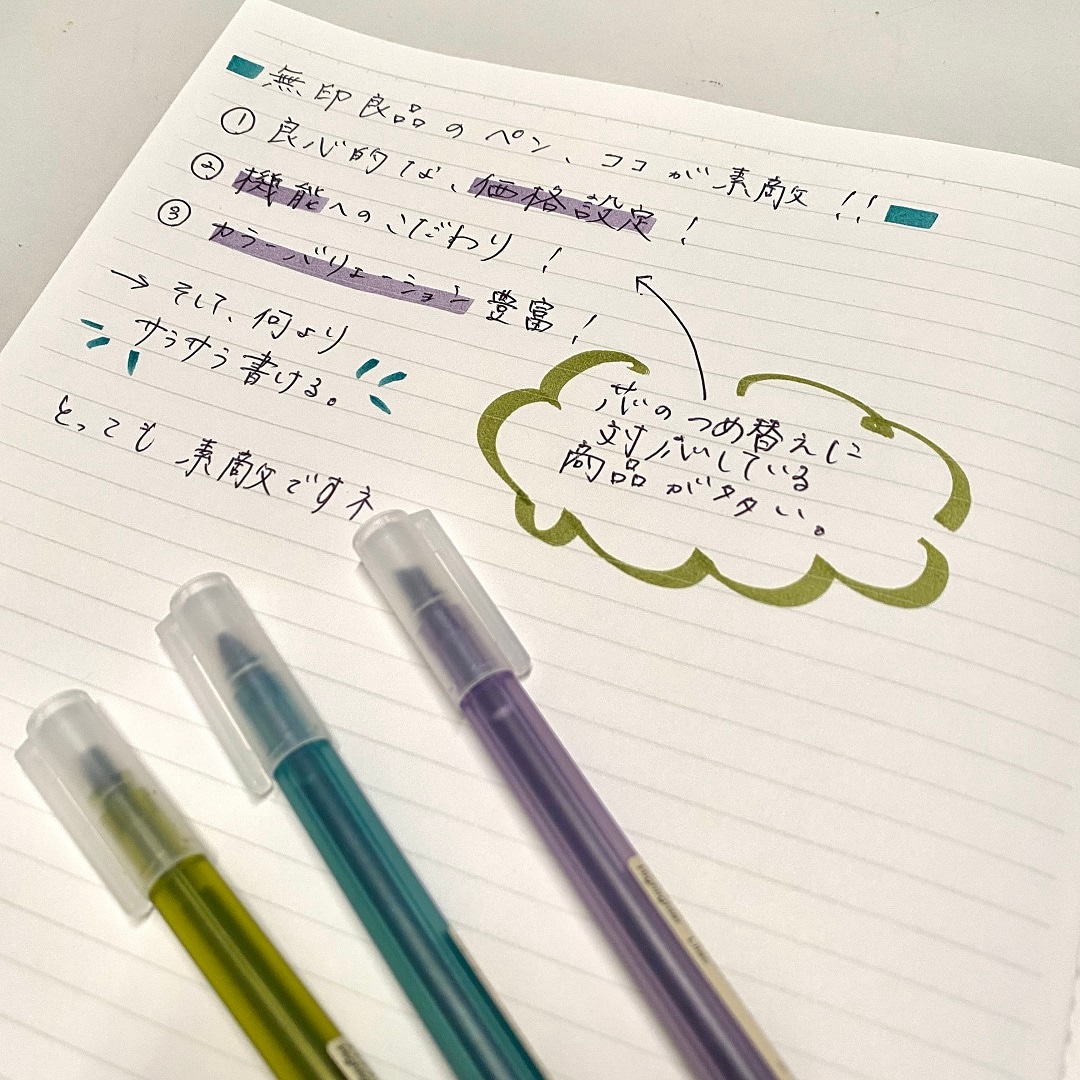 無印良品のペン、ココが素敵!!
① 良心的な、価格設定!
② 機能へのこだわり!
③ カラーバリエーション豊富!
→ そして、何より
サラサラ書ける。
とっても素敵ですネ
芯のつめ替えに
対応している
商品が多い。